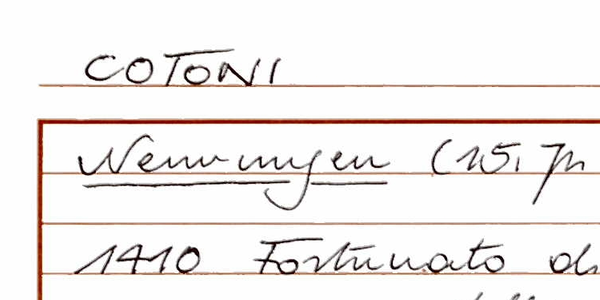 COTONI
Nennungen (15. Jh
1410 Fortunato di